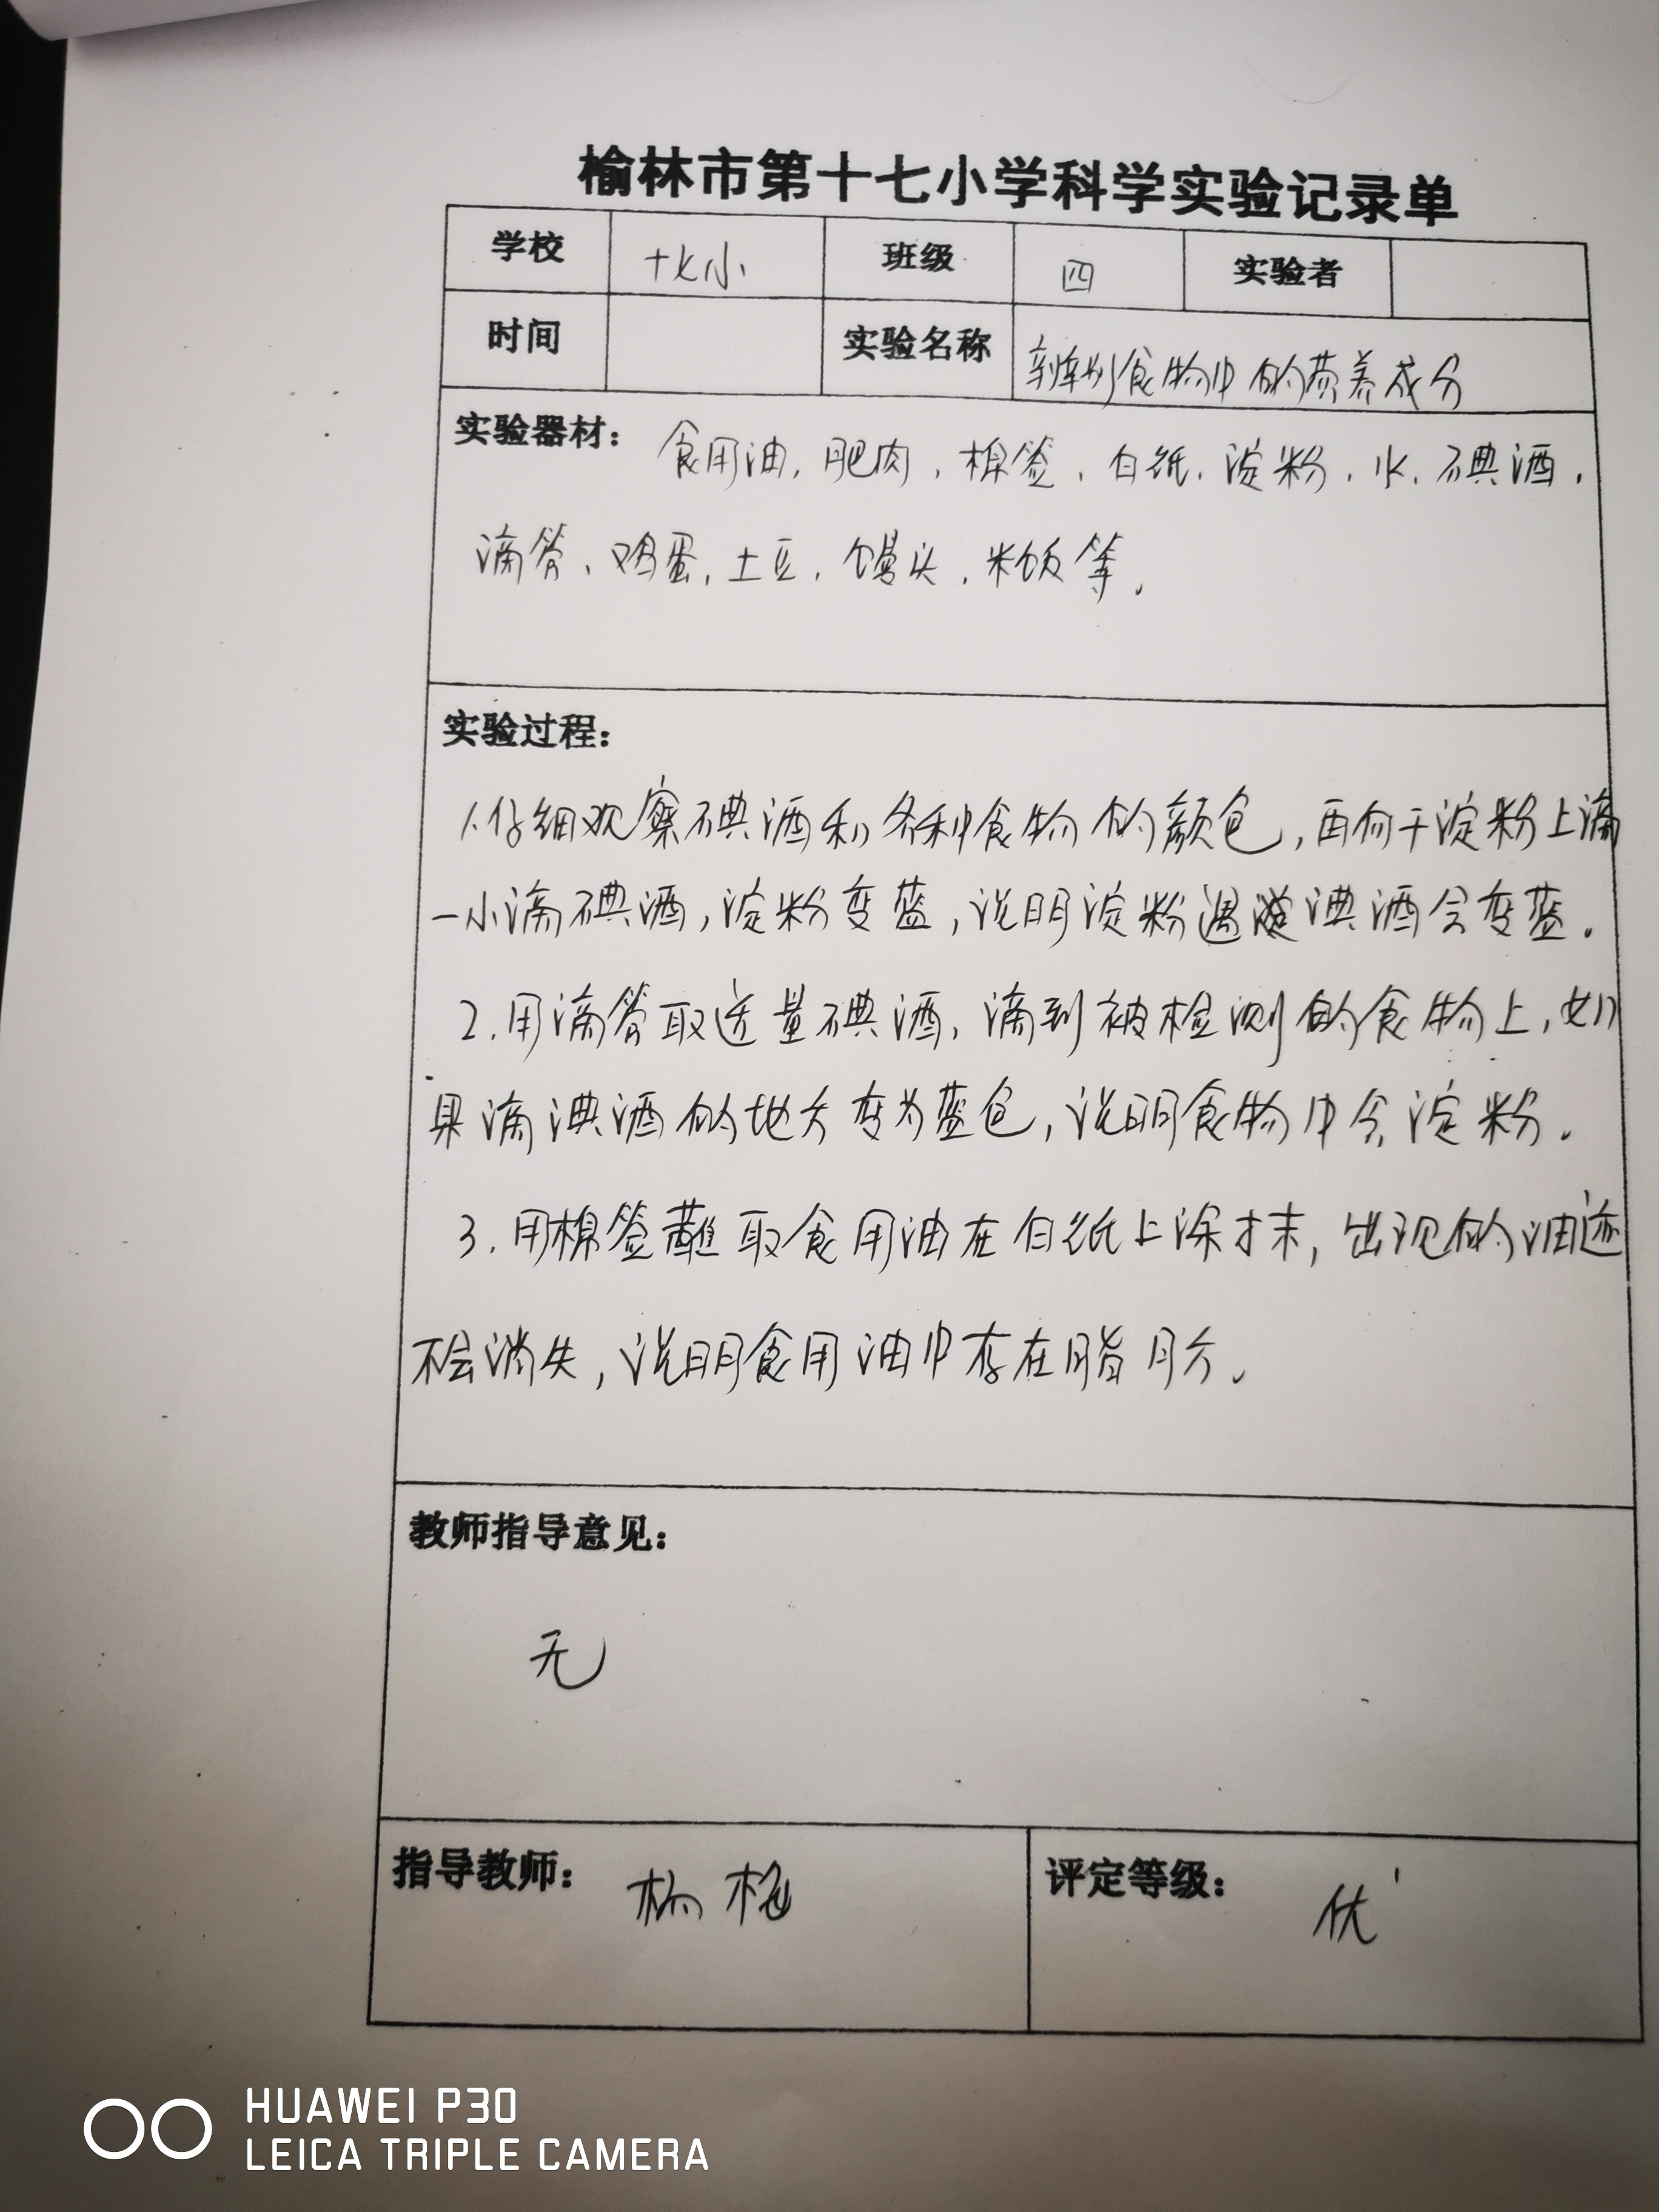 榆林市第十七小学科学实验记录单
学校 十七小 班级 四 实验者
时间 实验名称 辨别食物中的营养成分
实验器材: 食用油,肥肉,棉签,白纸,淀粉,水,碘酒,
滴管、鸡蛋,土豆,馒头,米饭等。
实验过程:
1.仔细观察碘酒和各种食物的颜色,再向干淀粉上滴
一小滴碘酒,淀粉变蓝,说明淀粉遇碘酒会变蓝。
2.用滴管取适量碘酒,滴到被检测的食物上,如
果滴碘酒的地方变为蓝色,说明食物中含淀粉。
3.用棉签蘸取食用油在白纸上涂抹,出现的油迹
不会消失,说明食用油中存在脂肪。
教师指导意见:
无
指导教师: 杨梅 评定等级: 优
HUAWEI P30
LEICA TRIPLE CAMERA